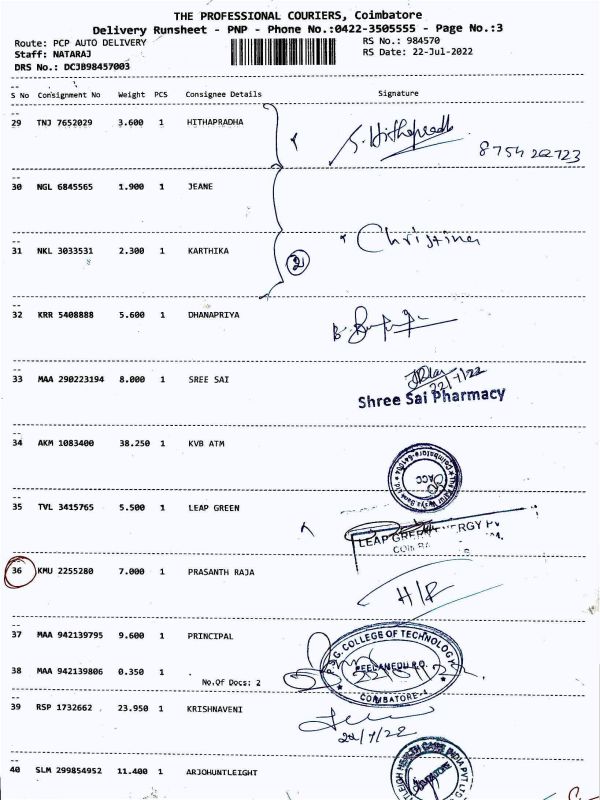 THE PROFESSIONAL COURIERS, Coimbatore
Delivery Runsheet - PNP - Phone No.:0422-3505555 - Page No.:3
Route: PCP AUTO DELIVERY RS No.: 984570
Staff: NATARAJ RS Date: 22-Jul-2022
DRS No.: DCJB98457003
S No Consignment No Weight PCS Consignee Details Signature
29 TNJ 7652029 3.600 1 HITHAPRADHA
S. Hithapradh
30 NGL 6845565 1.900 1 JEANE
Christina
31 NKL 3033531 2.300 1 KARTHIKA
2
32 KRR 5408888 5.600 1 DHANAPRIYA
33 MAA 290223194 8.000 1 SREE SAI
22/7/22
Shree Sai Pharmacy
34 AKM 1083400 38.250 1 KVB ATM
35 TVL 3415765 5.500 1 LEAP GREEN
LEAP GREEN ENERGY
36 KMU 2255280 7.000 1 PRASANTH RAJA
H/R
37 MAA 942139795 9.600 1 PRINCIPAL
P.S.G. COLLEGE OF TECHNOLOGY
PEELAMEDU P.O.
COIMBATORE-4
38 MAA 942139806 0.350 1
No.Of Docs: 2
39 RSP 1732662 23.950 1 KRISHNAVENI
22/7/22
40 SLM 299854952 11.400 1 ARJOHUNTLEIGH
HEALTH CARE INDIA PVT LTD